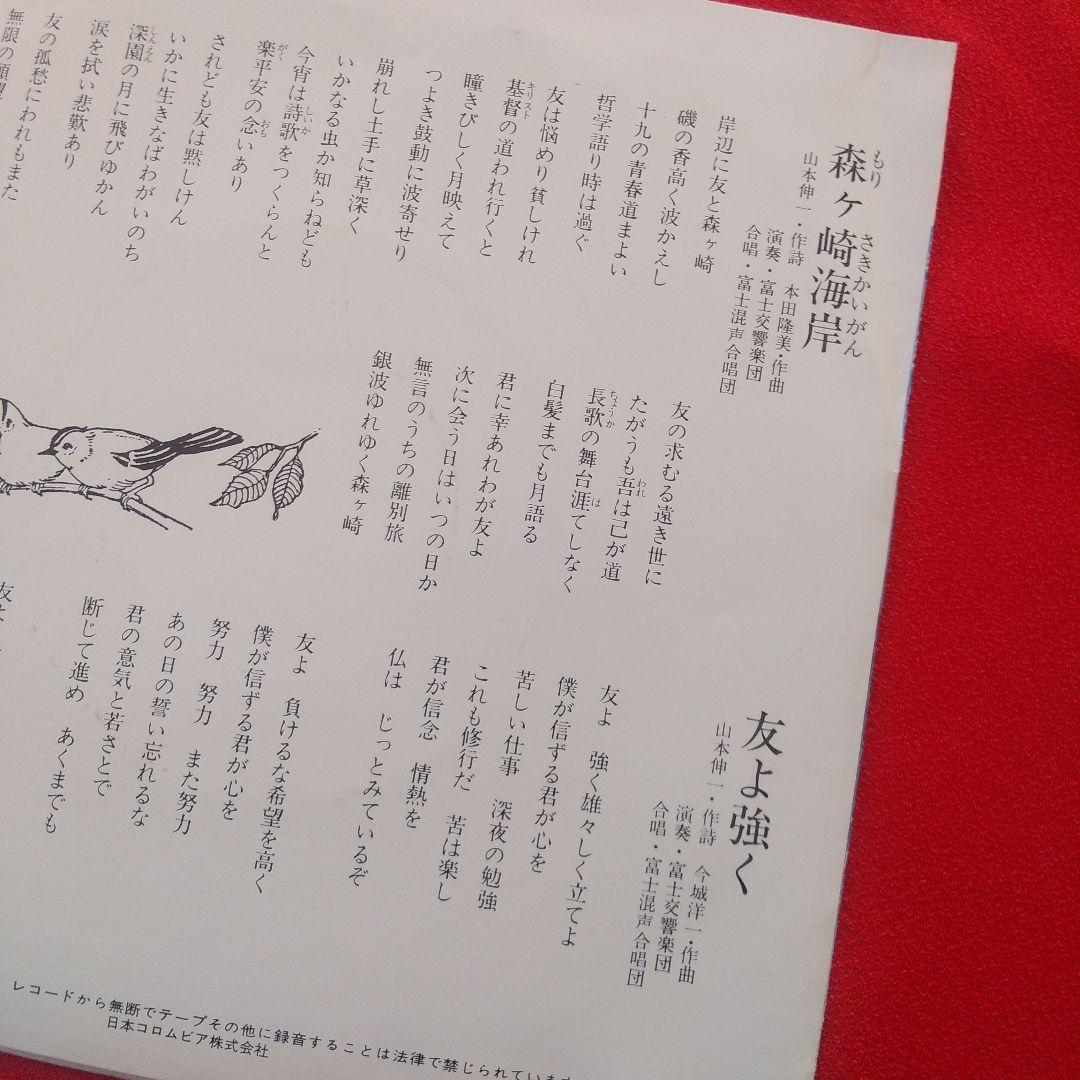 森ヶ崎海岸
もり さきかいがん
山本伸一・作詩 本田隆美・作曲
演奏・富士交響楽団
合唱・富士混声合唱団
岸辺に友と森ヶ崎
磯の香高く波かえし
十九の青春道まよい
哲学語り時は過ぐ
友は悩めり貧しけれ
基督の道われ行くと
キリスト
瞳きびしく月映えて
つよき鼓動に波寄せり
崩れし土手に草深く
いかなる虫か知らねども
今宵は詩歌をつくらんと
しいか
楽平安の念いあり
がく おも
されども友は黙しけん
いかに生きなばわがいのち
深園の月に飛びゆかん
しんえん
涙を拭い悲歎あり
友の孤愁にわれもまた
無限の願望
友の求むる遠き世に
たがうも吾は己が道
われ
長歌の舞台涯てしなく
ちょうか は
白髪までも月語る
君に幸あれわが友よ
次に会う日はいつの日か
無言のうちの離別旅
銀波ゆれゆく森ヶ崎
友よ強く
山本伸一・作詩 今城洋一・作曲
演奏・富士交響楽団
合唱・富士混声合唱団
友よ 強く雄々しく立てよ
僕が信ずる君が心を
苦しい仕事 深夜の勉強
これも修行だ 苦は楽し
君が信念 情熱を
仏は じっとみているぞ
友よ 負けるな希望を高く
僕が信ずる君が心を
努力 努力 また努力
あの日の誓い忘れるな
君の意気と若さとで
断じて進め あくまでも
友よ
レコードから無断でテープその他に録音することは法律で禁じられています
日本コロムビア株式会社